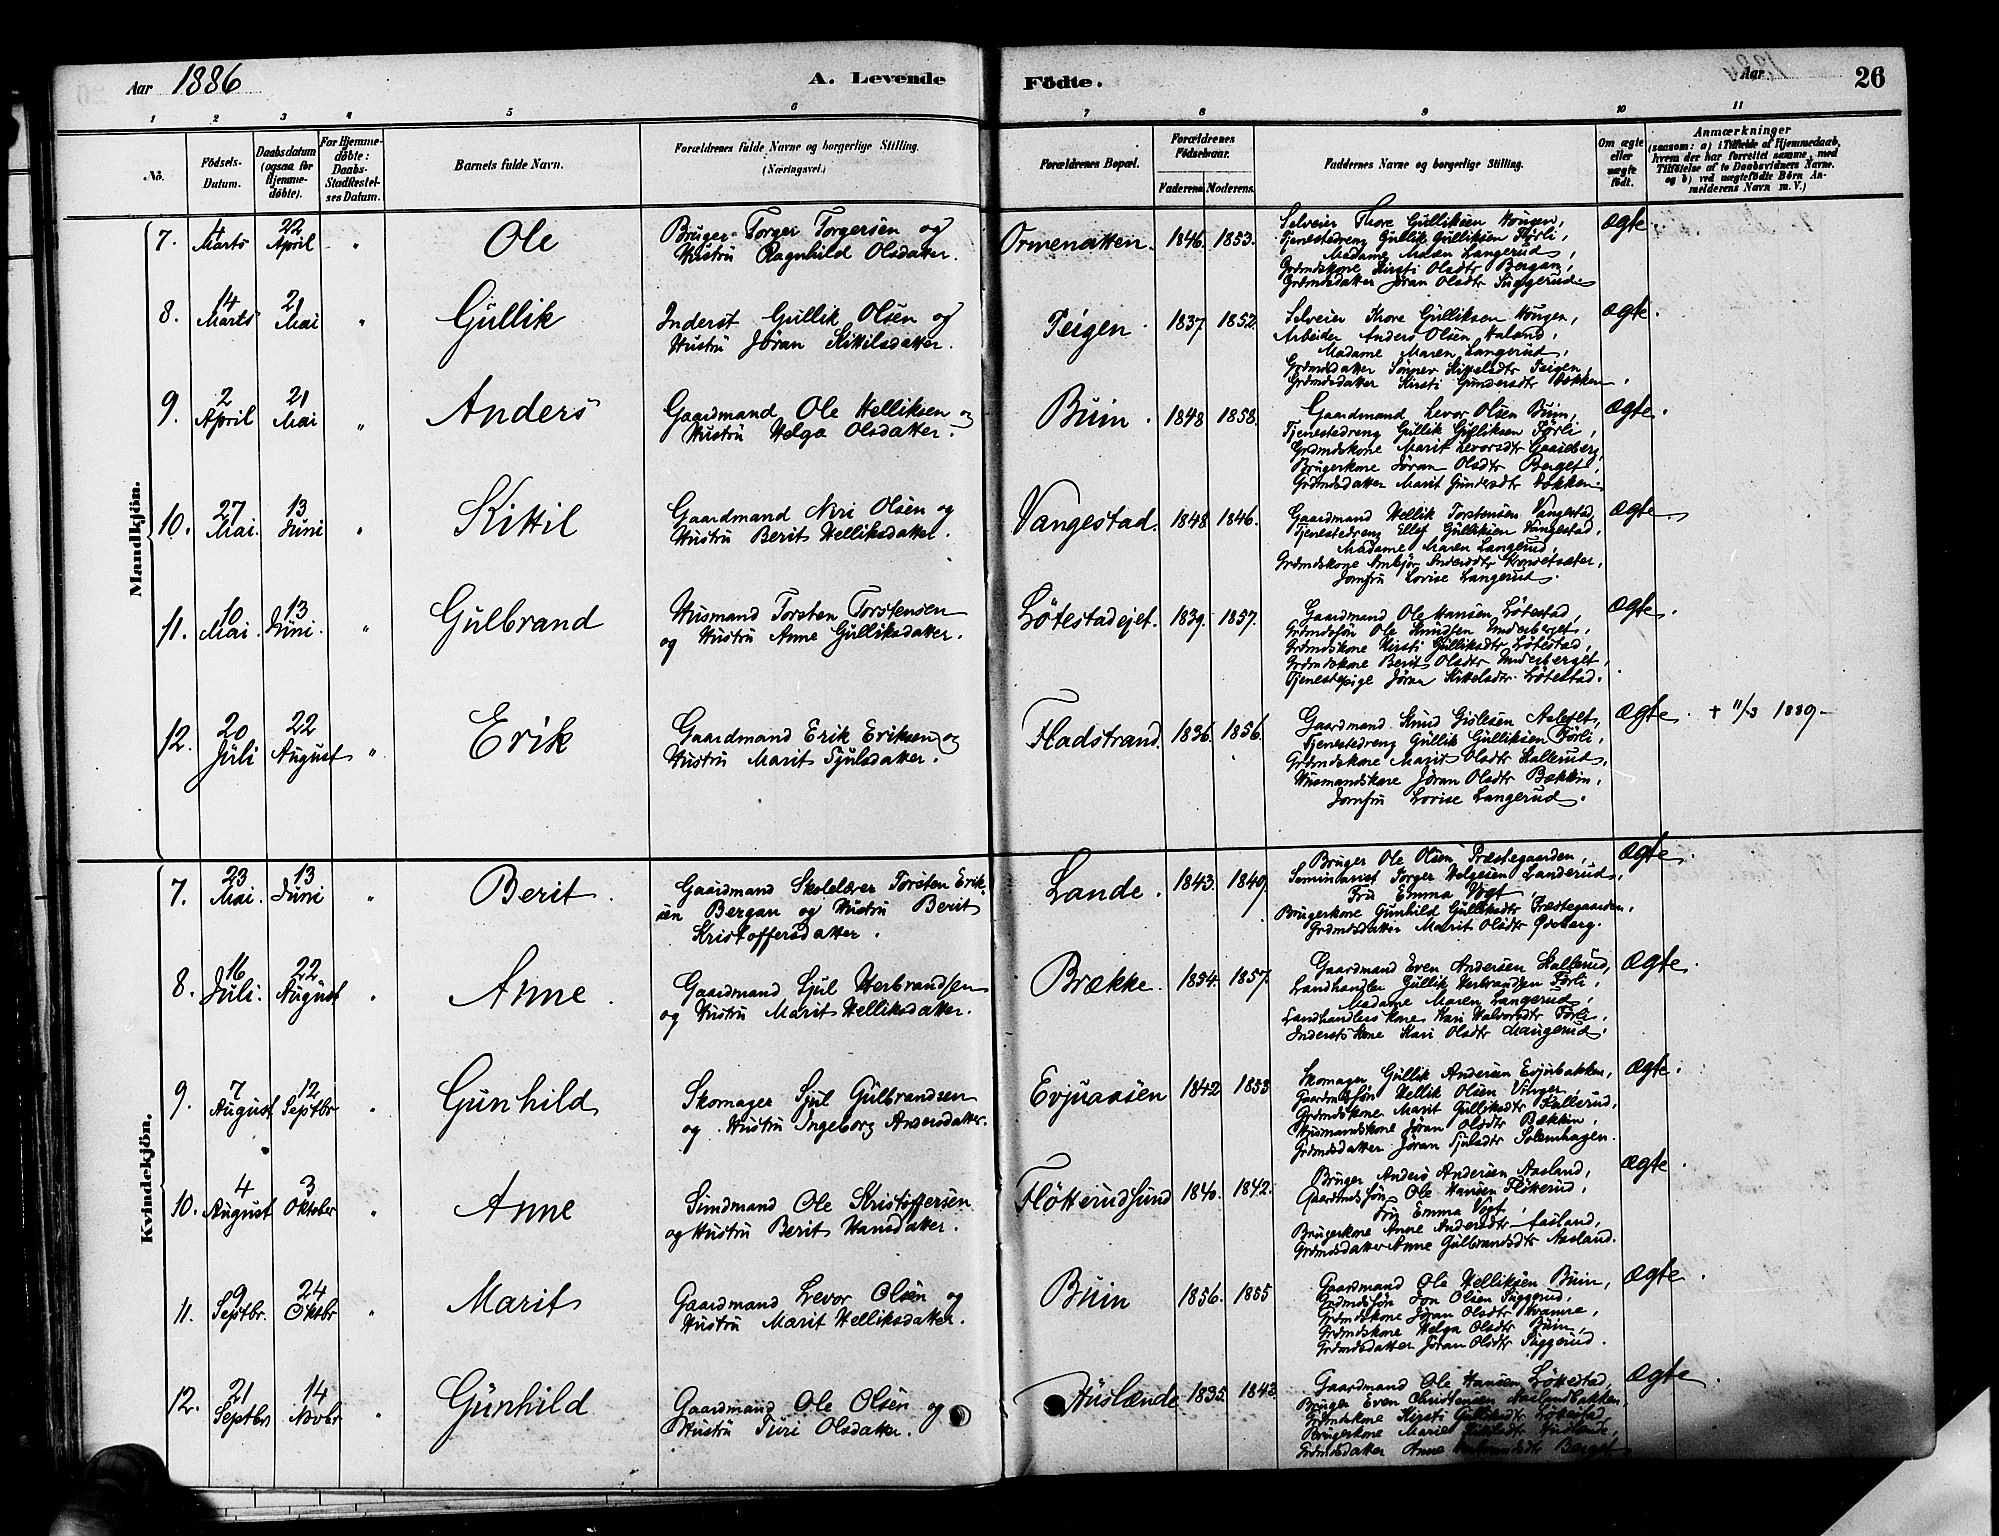 Aar 1886 A. Levende Fødte. Aar 26
1 2 3 4 5 6 7 8 9 10 11
No. Fødsels-Datum. Daabsdatum (ogsaa for Hjemme-døbte). For Hjemme-døbte: Daabs-Stadfæstel-ses Datum. Barnets fulde Navn. Forældrenes fulde Navne og borgerlige Stilling. (Næringsvei.) Forældrenes Bopæl. Forældrenes Fødselsaar. Faderens Moderens. Faddernes Navne og borgerlige Stilling. Om ægte eller uægte født. Anmærkninger (saasom: a) i Tilfælde af Hjemmedaab, hvem der har forrettet samme, med Tilføielse af to Daabsvidners Navne. og b) ved uægtefødte Børn An-melderens Navn m. V.)
Mandkjøn.
7. 4 Marts 22 April " Ole Bruger Torger Torgersen og Hustru Ragnhild Olsdatter. Ormenatten. 1846. 1853. ægte
Selveier Thore Gulliksen Hougen,
Tjenestedreng Gullik Gulliksen Førli,
Madame Maren Langerud,
Grdmdskone Kirsti Olsdtr Bergan,
Grdmdsdatter Jøran Olsdtr Suggerud.
8. 14 Marts 21 Mai " Gullik Inderst Gullik Olsen og Hustru Jøran Kittilsdatter. Teigen. 1837 1852. ægte.
Selveier Thore Gulliksen Hougen,
Arbeider Anders Olsen Haland,
Madame Maren Langerud,
Grdmdsdatter Kittelsdtr Teigen,
Grdmdsdatter Kirsti Gundersdtr Bakken.
9. 2 April 21 Mai " Anders Gaardmand Ole Helliksen og Hustru Helga Olsdatter. Buin. 1848 1858. ægte.
Gaardmand Levor Olsen Buin,
Tjenestedreng Gullik Gulliksen Førli,
Grdmdskone Marit Levorsdtr
Brugerkone Jøran Olsdtr Berget,
Grdmdsdatter Marit Gundersdtr Bakken.
10. 27 Mai. 13 Juni " Kittil Gaardmand Niri Olsen og Hustru Berit Helliksdatter. Vangestad. 1848 1846. ægte.
Gaardmand Hellik Torstensen Vangestad,
Tjenestedreng Ellef Gulliksen Vangestad,
Madame Maren Langerud,
Grdmdskone Ambjør Andersdtr
Jomfru Lovise Langerud.
11. 10 Mai. 13 Juni. " Gulbrand Husmand Torsten Torstensen og Hustru Anne Gulliksdatter. Løtestadejet. 1839. 1857. ægte.
Gaardmand Ole Hansen Løtestad,
Grdmdssøn Ole Knudsen Underberget,
Grdmdskone Kirsti Gulliksdtr Løtestad,
Grdmdskone Berit Olsdtr Underberget,
Tjenestepige Jøran Kittelsdtr Løtestad.
12. 20 Juli 22 August " Erik Gaardmand Erik Eriksen og Hustru Marit Tjulsdatter. Fladstrand. 1836. 1856. ægte. + 11/3 1889-
Gaardmand Knud Gislesen
Tjenestedreng Gullik Gulliksen Førli,
Grdmdskone Marit Olsdtr Kallerud,
Husmandskone Jøran Olsdtr Bækkin,
Jomfru Lovise Langerud.
Kvindekjøn.
7. 23 Mai. 13 Juni " Berit. Gaardmand Skolelærer Torsten Erik-sen Bergan og Hustru Berit Kristoffersdatter. Lande. 1843. 1849. ægte.
Bruger Ole Olsen Præstegaarden,
Seminarist Torger Helgesen Landerud,
Fru Emma Vogt
Brugerkone Gunhild Gulliksdtr Præstegaarden,
Grdmdsdatter Marit Olsdtr
8. 16 Juli. 22 August " Anne. Gaardmand Sjul Herbrandsen og Hustru Marit Helliksdatter. Brække. 1854. 1857. ægte.
Gaardmand Even Andersen Kallerud,
Landhandler Gullik Herbrandsen Førli,
Madame Maren Langerud,
Landhandlers kone Kari Halvorsdtr Førli,
Inderstskone Kari Olsdtr Haugerud.
9. 7 August 12 Septbr " Gunhild Skomager Sjul Gulbrandsen og Hustru Ingeborg Andersdatter. Evjuaasen 1842 1853 ægte.
Skomager Gullik Andersen Evjubakken,
Gaardmdssøn Hellik Olsen
Grdmdskone Marit Gulliksdtr Kallerud,
Husmandskone Jøran Olsdtr Bækkin,
Grdmdsdatter Jøran Sjulsdtr Solemhagen.
10. 4 August 3 Oktober " Anne Sundmand Ole Kristoffersen og Hustru Berit Hansdatter. Fløtterudsund 1840. 1842. ægte.
Bruger Anders Andersen Aasland,
Gaardmdssøn Ole Hansen Fløtterud,
Fru Emma Vogt,
Brugerkone Anne Andersdtr Aasland,
Grdmdsdatter Anne Gulbrandsdtr Aasland.
11. 9 Septbr. 24 Oktbr " Marit Gaardmand Levor Olsen og Hustru Marit Helliksdatter. Buin 1856. 1855 ægte.
Gaardmand Ole Helliksen Buin,
Grdmdssøn Jon Olsen Suggerud,
Grdmdskone Jøran Olsdtr Kvamre,
Grdmdskone Helga Olsdtr Buin,
Grdmdsdatter Jøran Olsdtr Suggerud.
12. 21 Septbr 14 Novbr " Gunhild Gaardmand Ole Olsen og Hustru Turi Olsdatter. Huslænde 1835. 1843 ægte.
Gaardmand Ole Hansen Løtestad,
Bruger Even Christensen Aaslandbakken,
Grdmdskone Kirsti Gulliksdtr Løtestad,
Brugerkone Marie Huslænde,
Grdmdsdatter Anne Berget